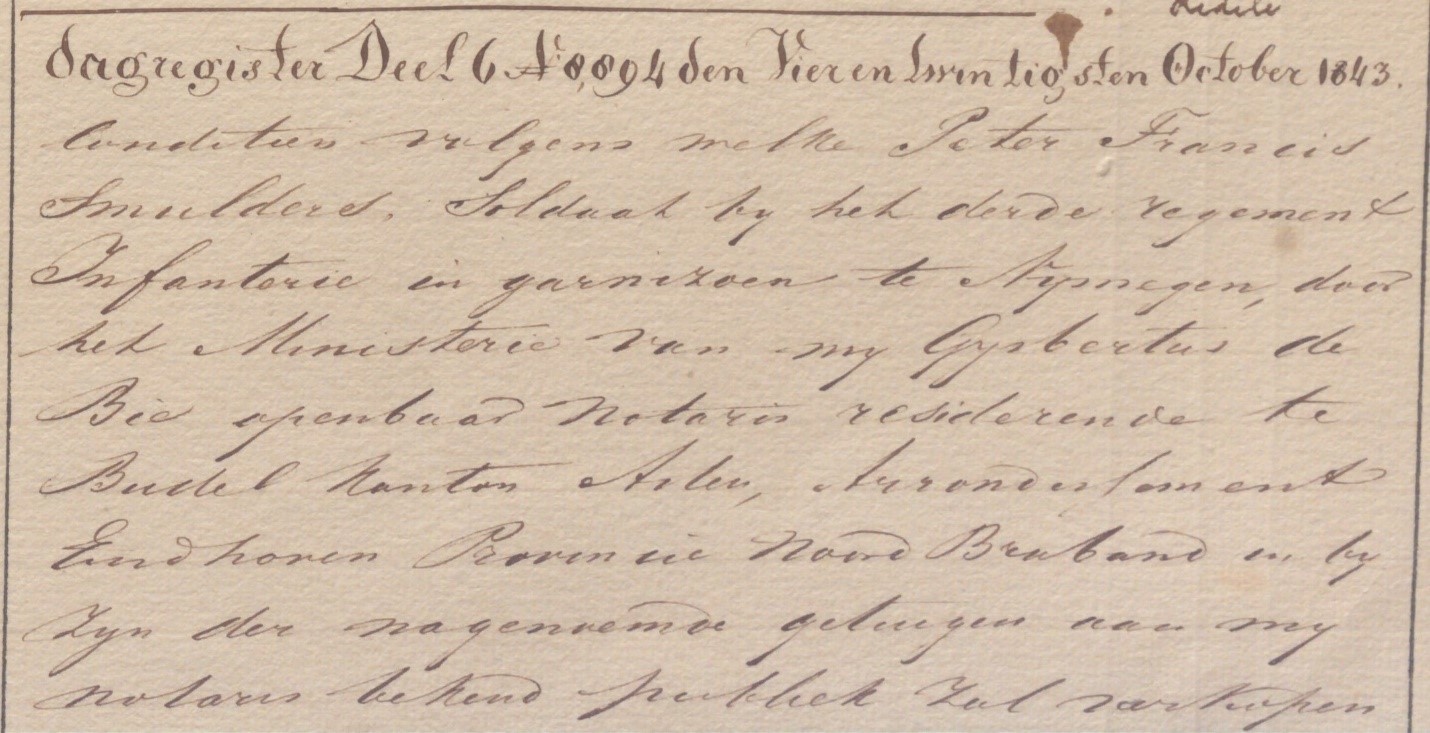 dagregister Deel 6 No 8,894 den Vier en twintigsten October 1843.
Conditien volgens welke Peter Francis
Smulders, Soldaat by het derde regement
Infanterie in garnizoen te Nymegen, door
het Ministerie van my Gysbertus de
Bie openbaar Notaris residerende te
Budel Kanton Asten, Arrondissement
Eindhoven Provincie Noord Braband in by
zyn der nagenoemde getuigen aan my
notaris bekend publiek zal verkopen